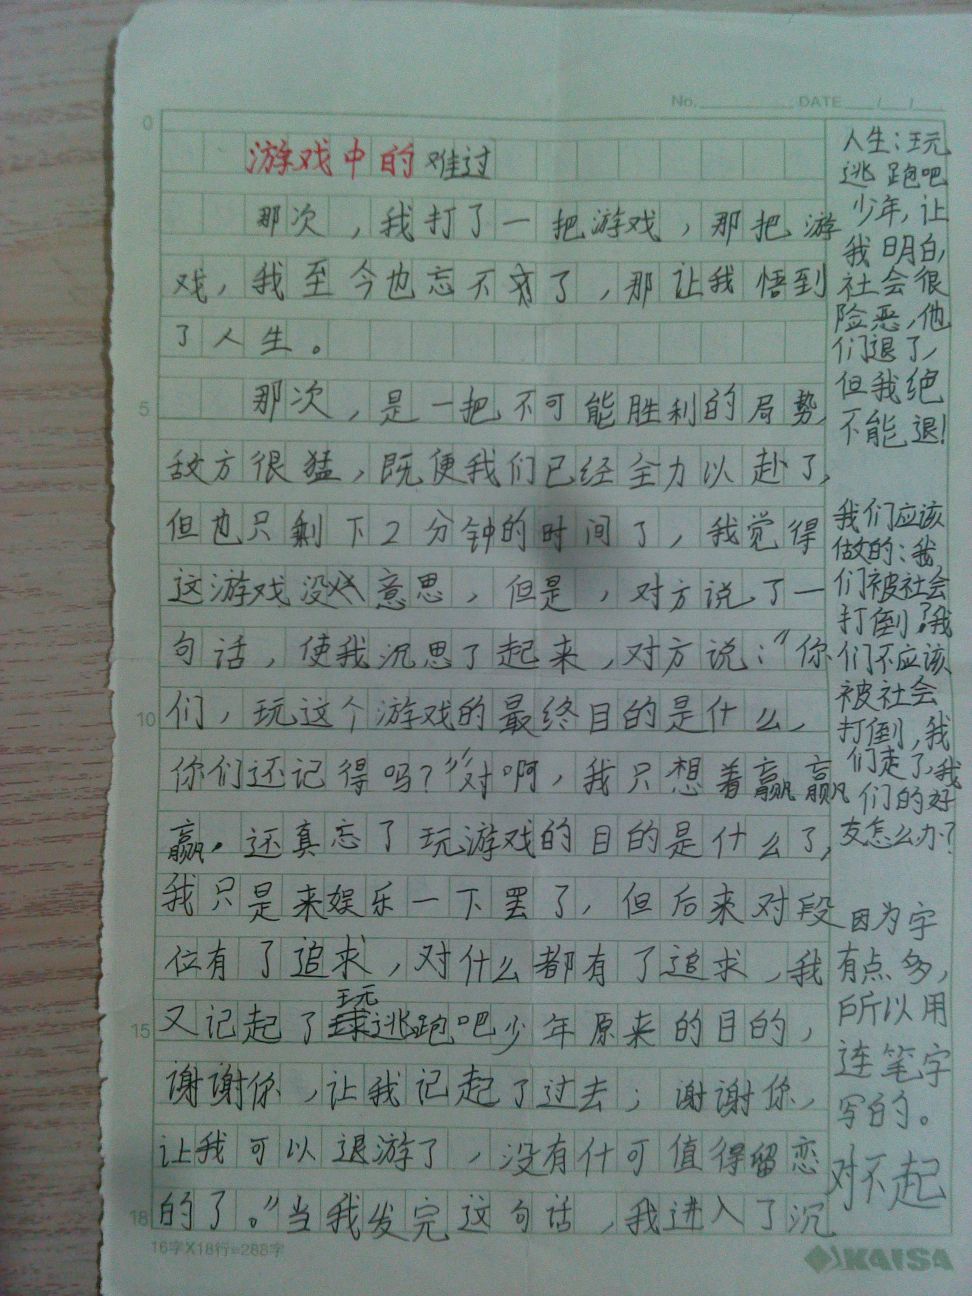 No. DATE / /
0
游戏中的难过
那次，我打了一把游戏，那把游
戏，我至今也忘不了，那让我悟到
了人生。
5
那次，是一把不可能胜利的局势，
敌方很猛，既便我们已经全力以赴了，
但也只剩下2分钟的时间了，我觉得
这游戏没意思，但是，对方说了一
句话，使我沉思了起来，对方说："你
10
们，玩这个游戏的最终目的是什么，
你们还记得吗？""对啊，我只想着赢赢
赢。还真忘了玩游戏的目的是什么了，
我只是来娱乐一下罢了，但后来对段
位有了追求，对什么都有了追求，我
15
又记起了玩逃跑吧少年原来的目的，
谢谢你，让我记起了过去；谢谢你，
让我可以退游了，没有什可值得留恋
18
的了。"当我发完这句话，我进入了沉
16字X18行=288字
KAISA
人生：玩
逃跑吧
少年，让
我明白，
社会很
险恶，他
们退了，
但我绝
不能退！
我们应该
做的：我
们被社会
打倒了，我
们不应该
被社会
打倒，我
们走了，我
们的好
友怎么办？
因为字
有点多，
所以用
连笔字
写的。
对不起